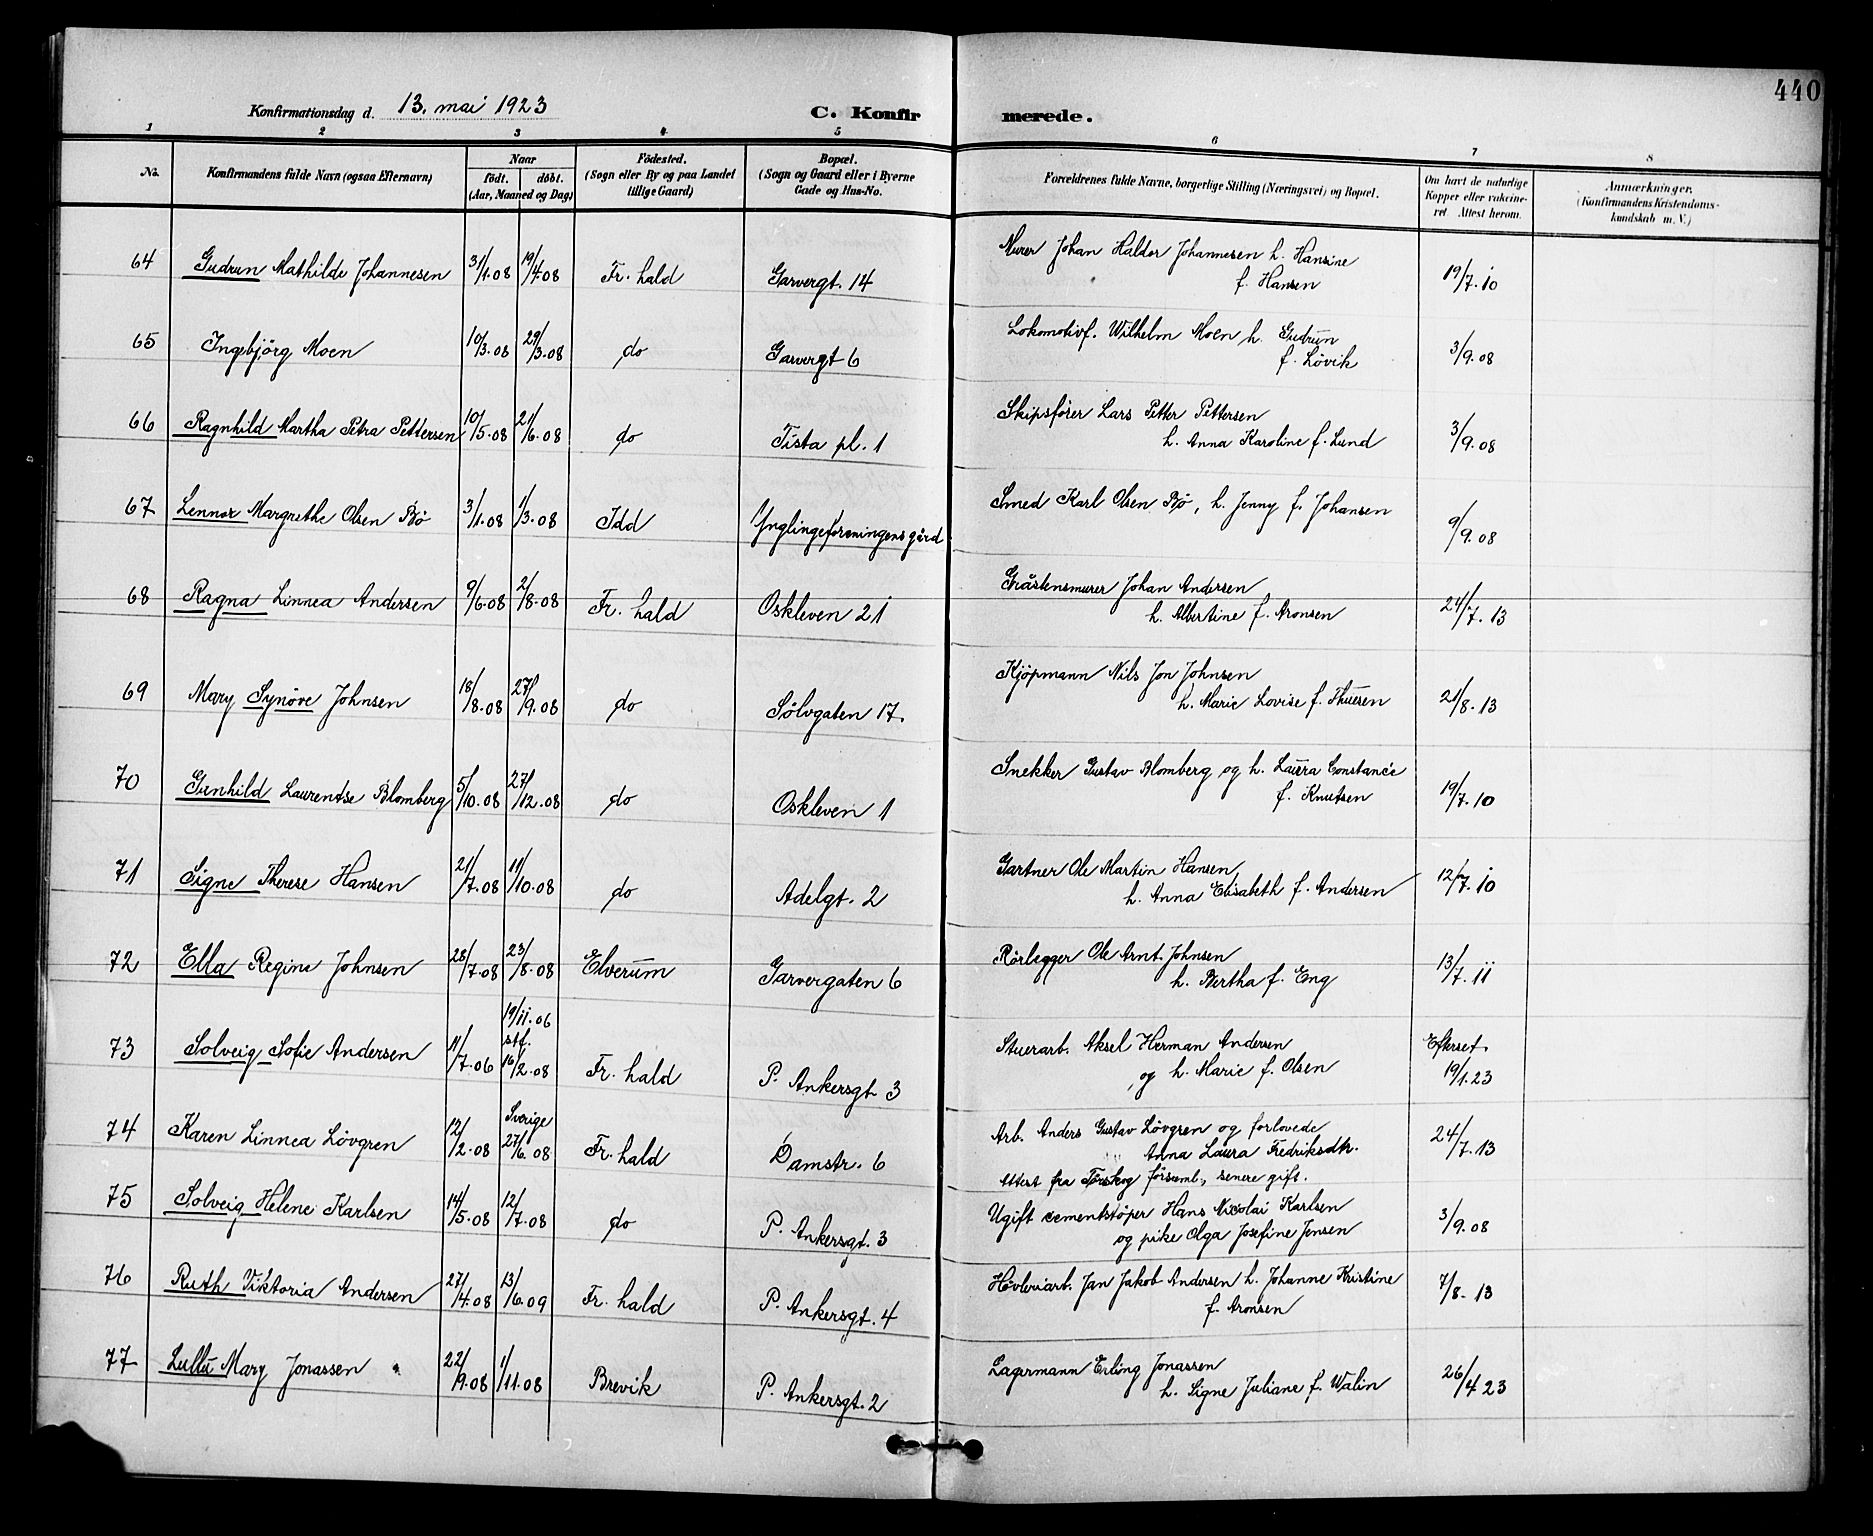 440
Konfirmationsdag d. 13. mai 1923 C. Konfirmerede.
1 2 3 4 5 6 7 8
No. Konfirmandens fulde Navn (ogsaa Efternavn) Naar født. døbt. (Aar, Maaned og Dag) Fødested. (Sogn eller By og paa Landet tillige Gaard) Bopæl. (Sogn og Gaard eller i Byerne Gade og Hus-No. Forældrenes fulde Navne, borgerlige Stilling (Næringsvei) og Bopæl. Om havt de naturlige Kopper eller vakcineret Attest herom. Anmærkninger. (Konfirmandens Kristendomskundskab m. V.)
64 Gudrun Mathilde Johannesen 31/1.08 19/4.08 Fr. hald Garvergt. 14 Murer Johan Haldor Johannesen h. Hansine
f. Hansen 19/7.10
65 Ingebjörg Moen 10/3.08 29/3.08 do Garvergt 6 Lokomotivf. Wilhelm Moen h. Gudrun
f. Lövik 3/9.08
66 Ragnhild Martha Petra Pettersen 10/5.08 21/6.08 do Tista pl. 1 Skipsfører Lars Petter Pettersen
h. Anna Karoline f. Lund 3/9.08
67 Lennor Margrethe Olsen Bö 3/1.08 1/3.08 Idd Ynglingeforeningens gård Smed Karl Olsen Bö, h. Jenny f. Johansen 9/9.08
68 Ragna Linnea Andersen 9/6.08 2/8.08 Fr. hald Oskleven 21 Gråstensmurer Johan Andersen
h. Albertine f. Aronsen 24/7.13
69 Mary Synöve Johnsen 18/8.08 27/9.08 do Sölvgaten 17. Kjöpmann Nils Jon Johnsen
h. Marie Lovise f. Thuesen 21/8.13
70 Gunhild Laurentse Blomberg 5/10.08 27/12.08 do Oskleven 1 Snekker Gustav Blomberg og h. Laura Constance
f. Knutsen 19/7.10
71 Signe Therese Hansen 21/7.08 11/10.08 do Adelgt. 2 Gartner Ole Martin Hansen,
h. Anna Elisabeth f. Andersen 12/7.10
72 Ella Regine Johnsen 28/7.08 23/8.08 Elverum Garvergaten 6 Rörlegger Ole Arnt Johnsen
h. Bertha f. Eng 13/7.11
73 Solveig Sofie Andersen 11/7.06 19/11.06 stf. 16/2.08 Fr. hald P. Ankersgt 3 Stuerarb. Aksel Herman Andersen
og h. Marie f. Olsen Efterset. 19/1.23
74 Karen Linnea Lövgren 12/2.08 Sverige 27/6.08 Fr. hald Damstr. 6 Arb. Anders Gustav Lövgren og forlovede
Anna Laura Fredriksdtr.
Attest fra Torskog församl., senere gift. 24/7.13
75 Solveig Helene Karlsen 14/5.08 12/7.08 do P. Ankersgt. 3 Ugift cementstøper Hans Nicolai Karlsen
og pike Olga Josefine Jensen 3/9.08
76 Ruth Viktoria Andersen 27/4.08 13/6.09 Fr. hald P. Ankersgt. 4 Hövleriarb. Jan Jakob Andersen h. Johanne Kristine
f. Aronsen 7/8.13
77 Lullu Mary Jonassen 22/9.08 1/11.08 Brevik P. Ankersgt. 2 Lagermann Erling Jonassen
h. Signe Juliane f. Walin 26/4 23